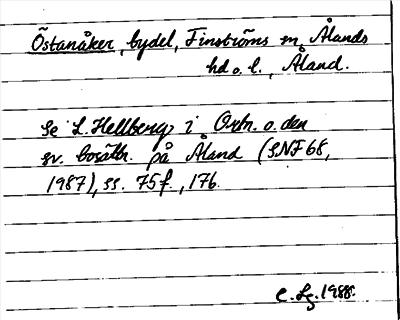 Östanåker, bydel, Finströms sn, Ålands
hd o. l., Åland.
Se L. Hellberg, i Ortn. o. den
sv. bosättn. på Åland (SNF 68,
1987), ss. 75 f., 176.
C. Lg. 1988.